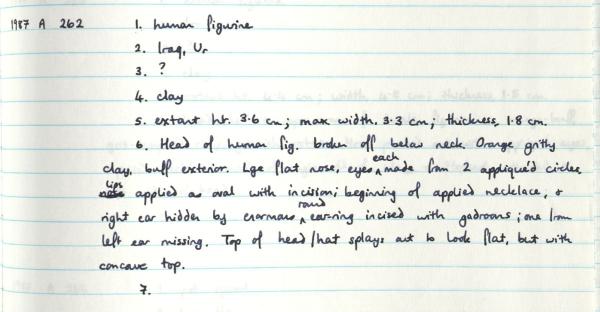 1987 A 262 1. human figurine
2. Iraq, Ur
3. ?
4. clay
5. extant ht. 3.6 cm; max width. 3.3 cm; thickness, 1.8 cm.
6. Head of human fig. broken off below neck. Orange gritty
clay, buff exterior. Lge flat nose, eyes each made from 2 appliqué'd circles,
lips applied as oval with incision; beginning of applied necklace, &
right ear hidden by enormous round ear-ring incised with gadroons; one from
left ear missing. Top of head/hat splays out to look flat, but with
concave top.
7.